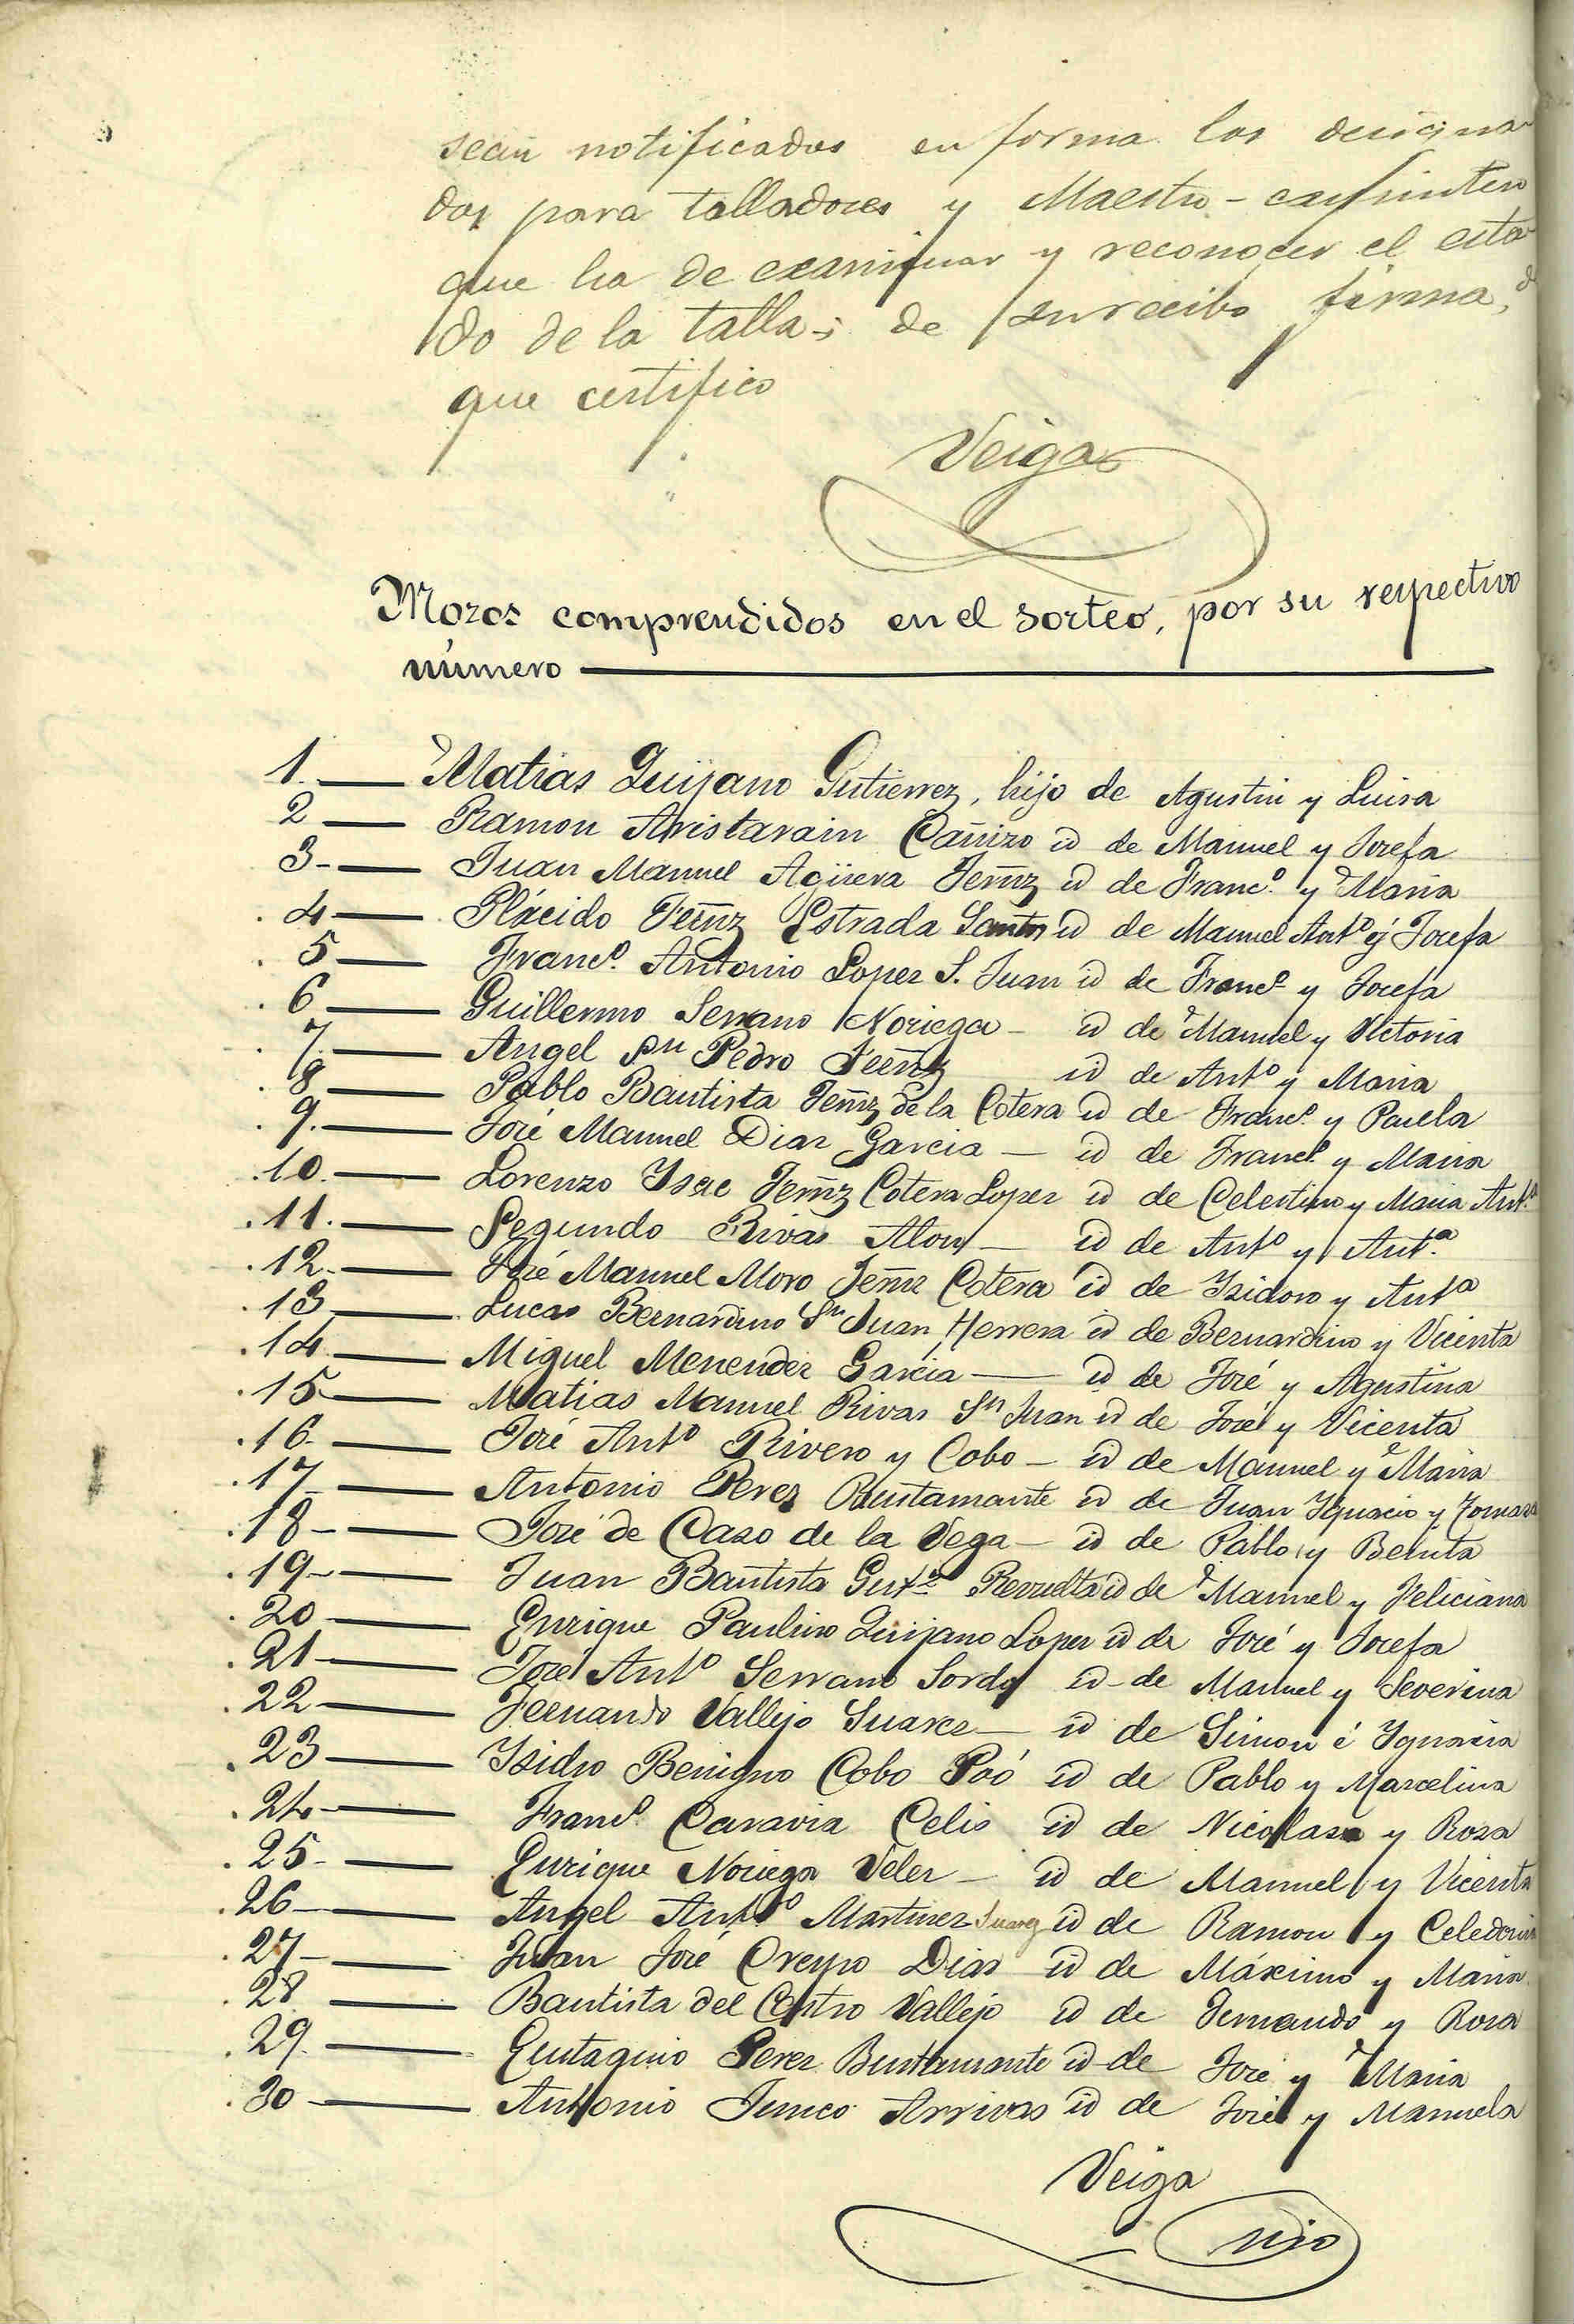 sean notificados en forma los designa-
dos para talladores y Maestro-carpintero
que ha de examinar y reconocer el esta-
do de la talla; de su recibo firma, d
que certifico
Veiga
Mozos comprendidos en el sorteo, por su respectivo
número
1. Matias Quijano Gutierrez, hijo de Agustin y Luisa
2 Ramon Aristarain Cañizo id de Manuel y Josefa
3 Juan Manuel Agüera Fern̄z id de Franc.º y Maria
4 Plácido Fern̄z Estrada Santos id de Manuel Antº y Josefa
5 Franc.º Antonio Lopez S. Juan id de Franc.º y Josefa
6 Guillermo Serrano Noriega id de Manuel y Victoria
7. Angel Sn Pedro Fern̄z id de Antº y Maria
8 Pablo Bautista Fern̄z de la Cotera id de Franc.º y Paula
9. José Manuel Diaz Garcia id de Franc.º y Maria
10. Lorenzo Ysac Fern̄z Cotera Lopez id de Celestino y Maria Ant.ª
11. Segundo Rivas Alon id de Antº y Ant.ª
12. José Manuel Moro Fern̄z Cotera id de Isidoro y Antª
13 Lucas Bernardino Sn Juan Herrera id de Bernardino y Vicenta
14 Miguel Menendez Garcia id de José y Agustina
15 Matias Manuel Rivas Sn Juan id de José y Vicenta
16. José Antº Rivero y Cobo id de Manuel y Maria
17 Antonio Perez Bustamante id de Juan Ygnacio y Tomasa
18 José de Caso de la Vega id de Pablo y Benita
19 Juan Bautista Gut.z Revuelta id de Manuel y Feliciana
20 Enrique Paulino Quijano Lopez id de José y Josefa
21 José Antº Serrano Sordo id de Manuel y Severina
22 Fernando Vallejo Suarez id de Simon é Ygnacia
23 Isidro Benigno Cobo Póo id de Pablo y Marcelina
24 Franc.º Caravia Celis id de Nicolasa y Rosa
25 Enrique Noriega Velez id de Manuel y Vicenta
26 Angel Antº Martinez Suarez id de Ramon y Celedonia
27 Juan José Crespo Dias id de Máximo y Maria
28 Bautista del Castro Vallejo id de Fernando y Rosa
29. Eustaquio Perez Bustamante id de José y Maria
30 Antonio Junco Arrivas id de José y Manuela
Veiga